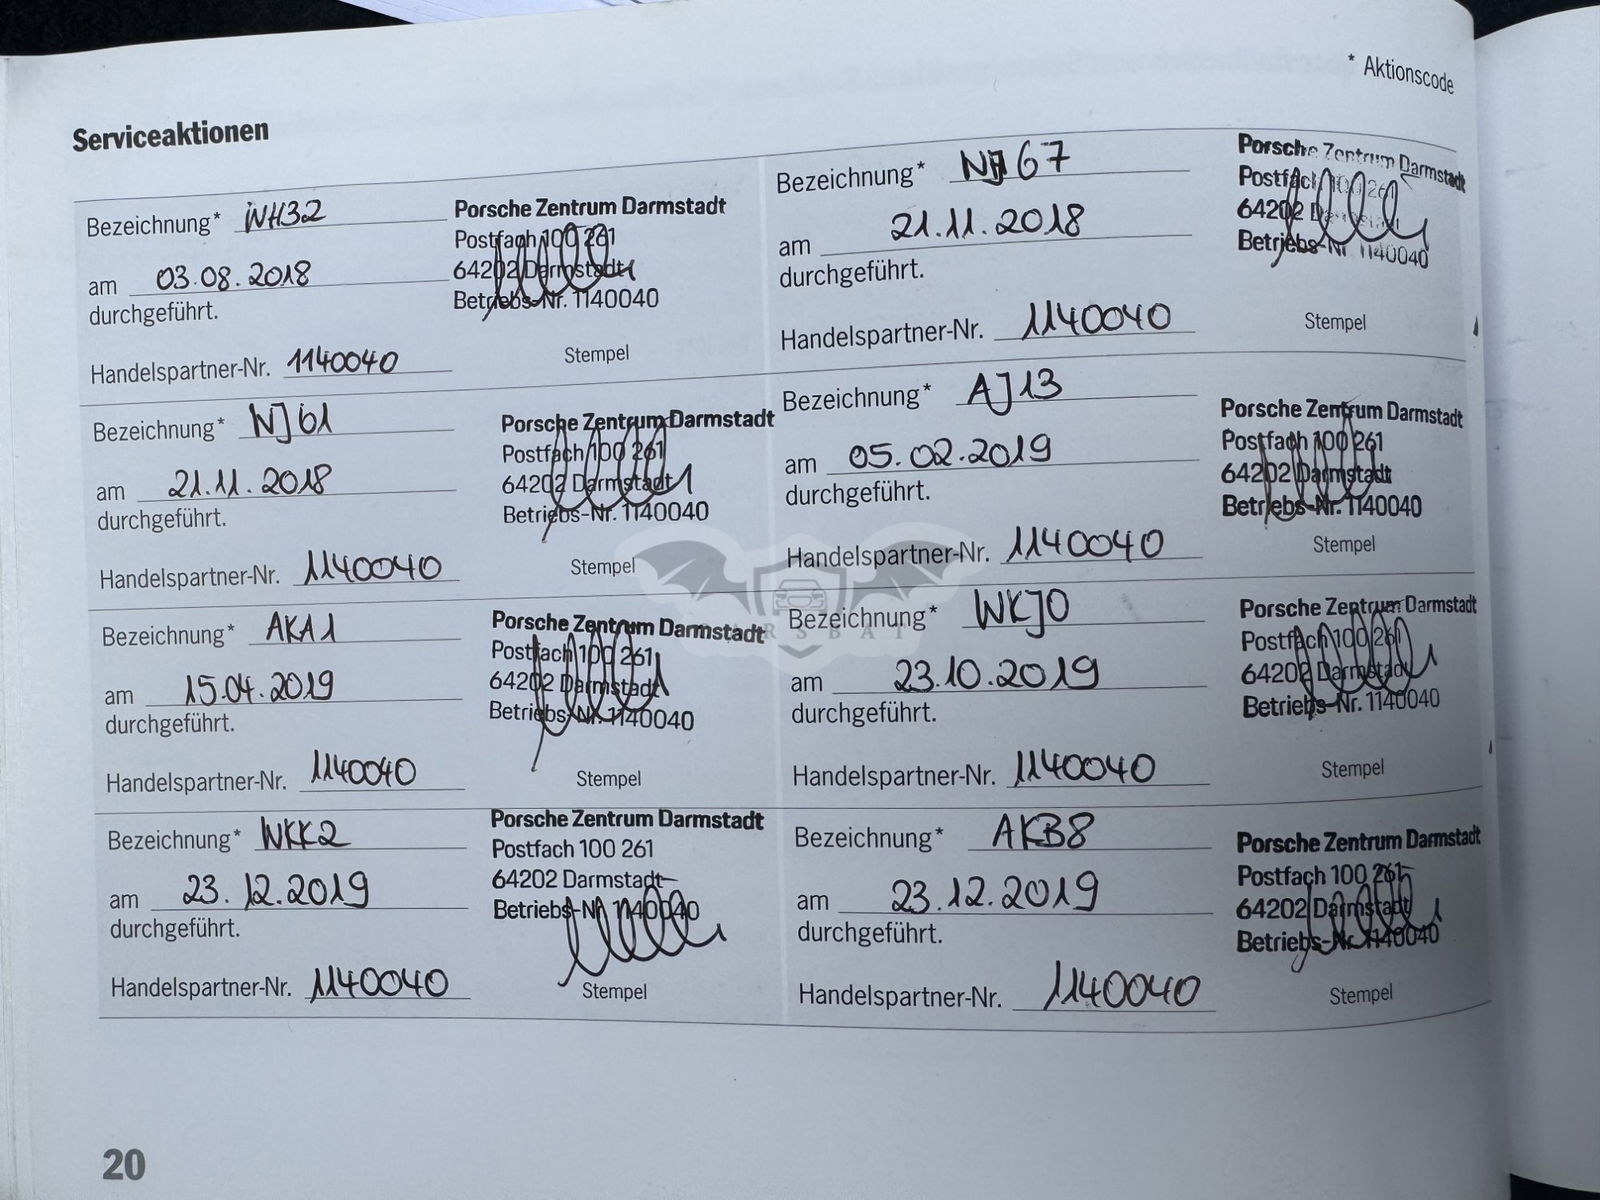 * Aktionscode
Serviceaktionen
Bezeichnung* WH32
am 03.08.2018
durchgeführt.
Handelspartner-Nr. 1140040
Porsche Zentrum Darmstadt
Postfach 100 261
64202 Darmstadt
Betriebs-Nr. 1140040
Stempel
Bezeichnung* NJ67
am 21.11.2018
durchgeführt.
Handelspartner-Nr. 1140040
Porsche Zentrum Darmstadt
Postfach 100 261
64202
Betriebs-Nr 1140040
Stempel
Bezeichnung* NJ61
am 21.11.2018
durchgeführt.
Handelspartner-Nr. 1140040
Porsche Zentrum Darmstadt
Postfach 100 261
64202 Darmstadt
Betriebs-Nr. 1140040
Stempel
Bezeichnung* AJ13
am 05.02.2019
durchgeführt.
Handelspartner-Nr. 1140040
Porsche Zentrum Darmstadt
Postfach 100 261
64202 Darmstadt
Betriebs-Nr. 1140040
Stempel
Bezeichnung* AKA1
am 15.04.2019
durchgeführt.
Handelspartner-Nr. 1140040
Porsche Zentrum Darmstadt
Postfach 100 261
64202 Darmstadt
Betriebs-Nr. 1140040
Stempel
Bezeichnung* WKJ0
am 23.10.2019
durchgeführt.
Handelspartner-Nr. 1140040
Porsche Zentrum Darmstadt
Postfach 100 261
64202 Darmstadt
Betriebs-Nr. 1140040
Stempel
Bezeichnung* WKK2
am 23.12.2019
durchgeführt.
Handelspartner-Nr. 1140040
Porsche Zentrum Darmstadt
Postfach 100 261
64202 Darmstadt
Betriebs-Nr. 1140040
Stempel
Bezeichnung* AKB8
am 23.12.2019
durchgeführt.
Handelspartner-Nr. 1140040
Porsche Zentrum Darmstadt
Postfach 100 261
64202 Darmstadt
Betriebs-Nr. 1140040
Stempel
CARSBAT
20